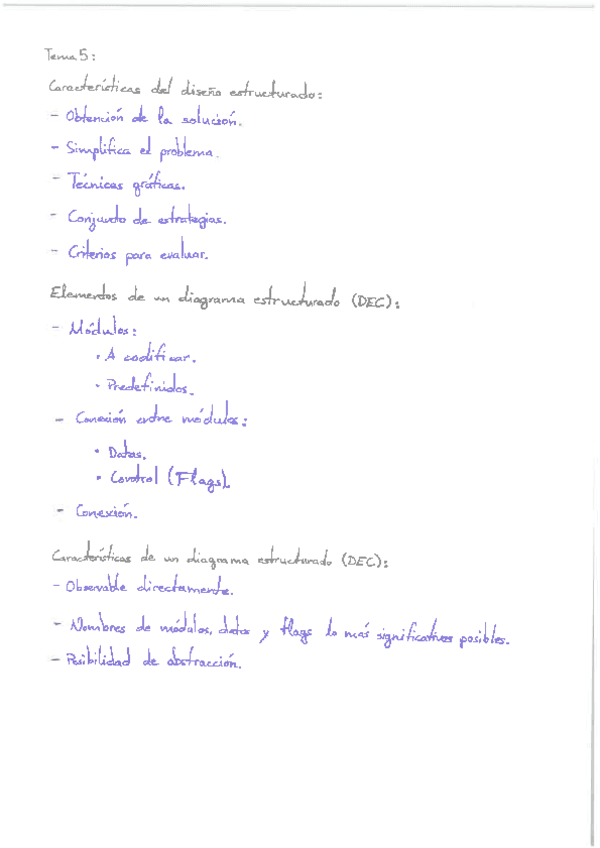 Tema 5:
Características del diseño estructurado:
- Obtención de la solución.
- Simplifica el problema.
- Técnicas gráficas.
- Conjunto de estrategias.
- Criterios para evaluar.
Elementos de un diagrama estructurado (DEC):
- Módulos:
• A codificar.
• Predefinidos.
- Conexión entre módulos:
• Datos.
• Control (Flags).
- Conexión.
Características de un diagrama estructurado (DEC):
- Observable directamente.
- Nombres de módulos, datos y flags lo más significativos posibles.
- Posibilidad de abstracción.